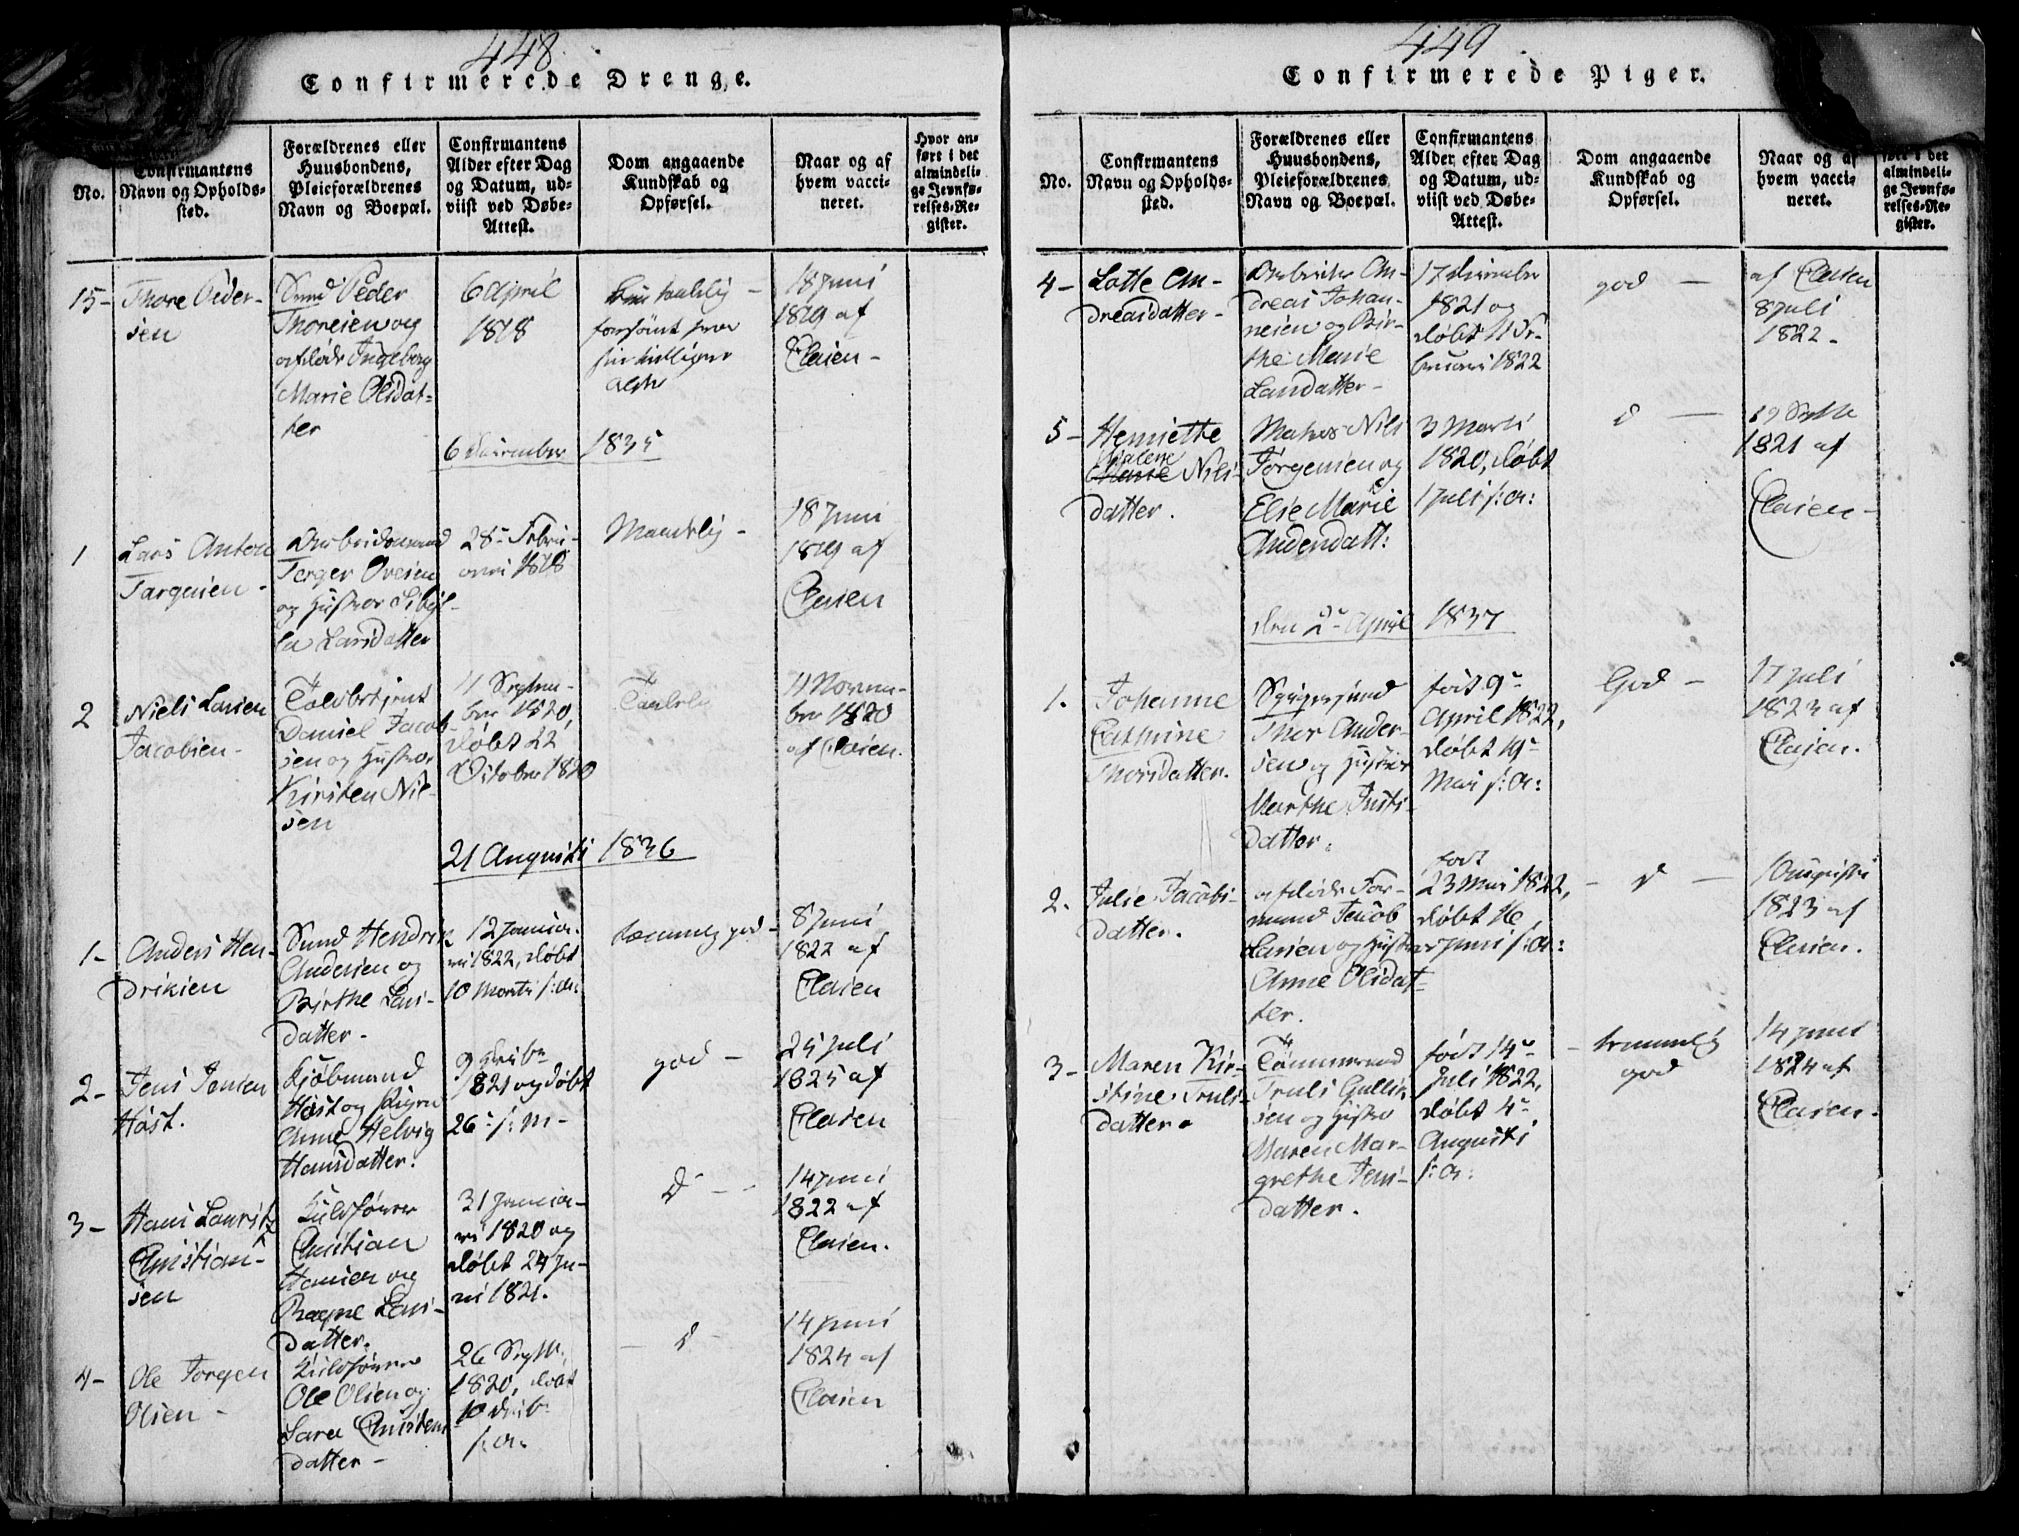 448
Confirmerede Drenge.
No.
Confirmantens
Navn og Opholds-
sted.
Forældrenes eller
Huusbondens,
Pleieforældrenes
Navn og Boepæl.
Confirmantens
Alder efter Dag
og Datum, ud-
viist ved Døbe-
Attest.
Dom angaaende
Kundskab og
Opførsel.
Naar og af
hvem vacci-
neret.
Hvor an-
ført i det
almindeli-
ge Jevnfø-
relses-Re-
gister.
15-
Thore Peder-
sen
Peder
Thoresen og
afdøde Ingeborg
Marie Olsdat-
ter
6 April
1818
18 Juni
1819 af
Clasen-
6 December 1835
1
Lars Anton
Targesen-
Arbeidsmand
Terger Ovesen
og Hustroe
Larsdatter
28- Febru-
ari 1818
Maadelig-
18 Juni
1819 af
Clasen
2
Niels Larsen
Jacobsen-
Toldbetjent
Daniel Jacob-
sen og Hustroe
Kirsten Niel-
sen
11 Septem-
ber 1820,
døbt 22
October 1820
Taalelig
11 Novem-
ber 1820
af Clasen.
21 Augusti 1836
1-
Anders Hen-
driksen
Hendrik
Andersen og
Birthe Lars-
datter-
12 Janua-
ri 1822, døbt
10 Marti s: a:
temmelig god-
8 Juni
1822 af
Clasen
2-
Jens Jensen
Høst.
Kjøbmand
Høst og Pigen
Anne Helvig
Hansdatter.
9
1821 og døbt
26- s: m-
god-
25 Juli
1825 af
Clasen
3-
Hans Lauritz
Christian-
sen
Christian
Hansen og
Ragne Lars-
datter.
31 Janua-
ri 1820 og
døbt 24 Ju-
ni 1821.
d--
14 Juni
1822 af
Clasen.
4-
Ole Jørgen
Olsen-
Ole Olsen og
Sara Christens
datter-
26 Septbr.
1820, døbt
10
s: a:
d-
14 Juni
1824 af
Clasen
449
Confirmerede Piger.
No.
Confirmantens
Navn og Opholds-
sted.
Forældrenes eller
Huusbondens,
Pleieforældrenes
Navn og Boepæl.
Confirmantens
Alder efter Dag
og Datum, ud-
viist ved Døbe-
Attest.
Dom angaaende
Kundskab og
Opførsel.
Naar og af
hvem vacci-
neret.
ført i det
almindeli-
ge Jevnfø-
relses-Re-
gister.
4-
Lotte An-
dreasdatter-
An-
dreas Johan-
nesen og Bir-
the Marie
Larsdatter-
17 December
1821 og
døbt 11 Fe-
bruari 1822
god-
af Clasen
8 Juli
1822-
5-
Henriette
Malene
Marie Nils-
datter.
Matros Nils
Jørgensen og
Else Marie
Andersdatt:
3 Marti
1820, døbt
1 Juli s: a:
d-
19 Septbr
1821 af
Clasen-
den 2- April 1837
1.
Johanne
Cathrine
Thorsdatter.
Thor Ander-
sen og Hustroe
Marthe Justs-
datter.
født 9-
April 1822,
døbt 19-
Mai s: a:
God-
17 Juli
1823 af
Clasen.
2.
Julie Jacobs-
datter.
afdøde For-
mand Jacob
Larsen og Hustroe
Anne Olsdat-
ter.
født
23 Mai 1822,
døbt 16
Juni s: a:
- d -
1 Augusti
1823 af
Clasen.
3-
Maren Kir-
stine Truls-
datter.
Tømmermand
Truls Gullik-
sen og Hustro
Maren Mar-
grethe Jens-
datter.
født 14-
Juli 1822,
døbt 4-
Augusti
s: a:
- temmelig
god
14 Juni
1824 af
Clasen.